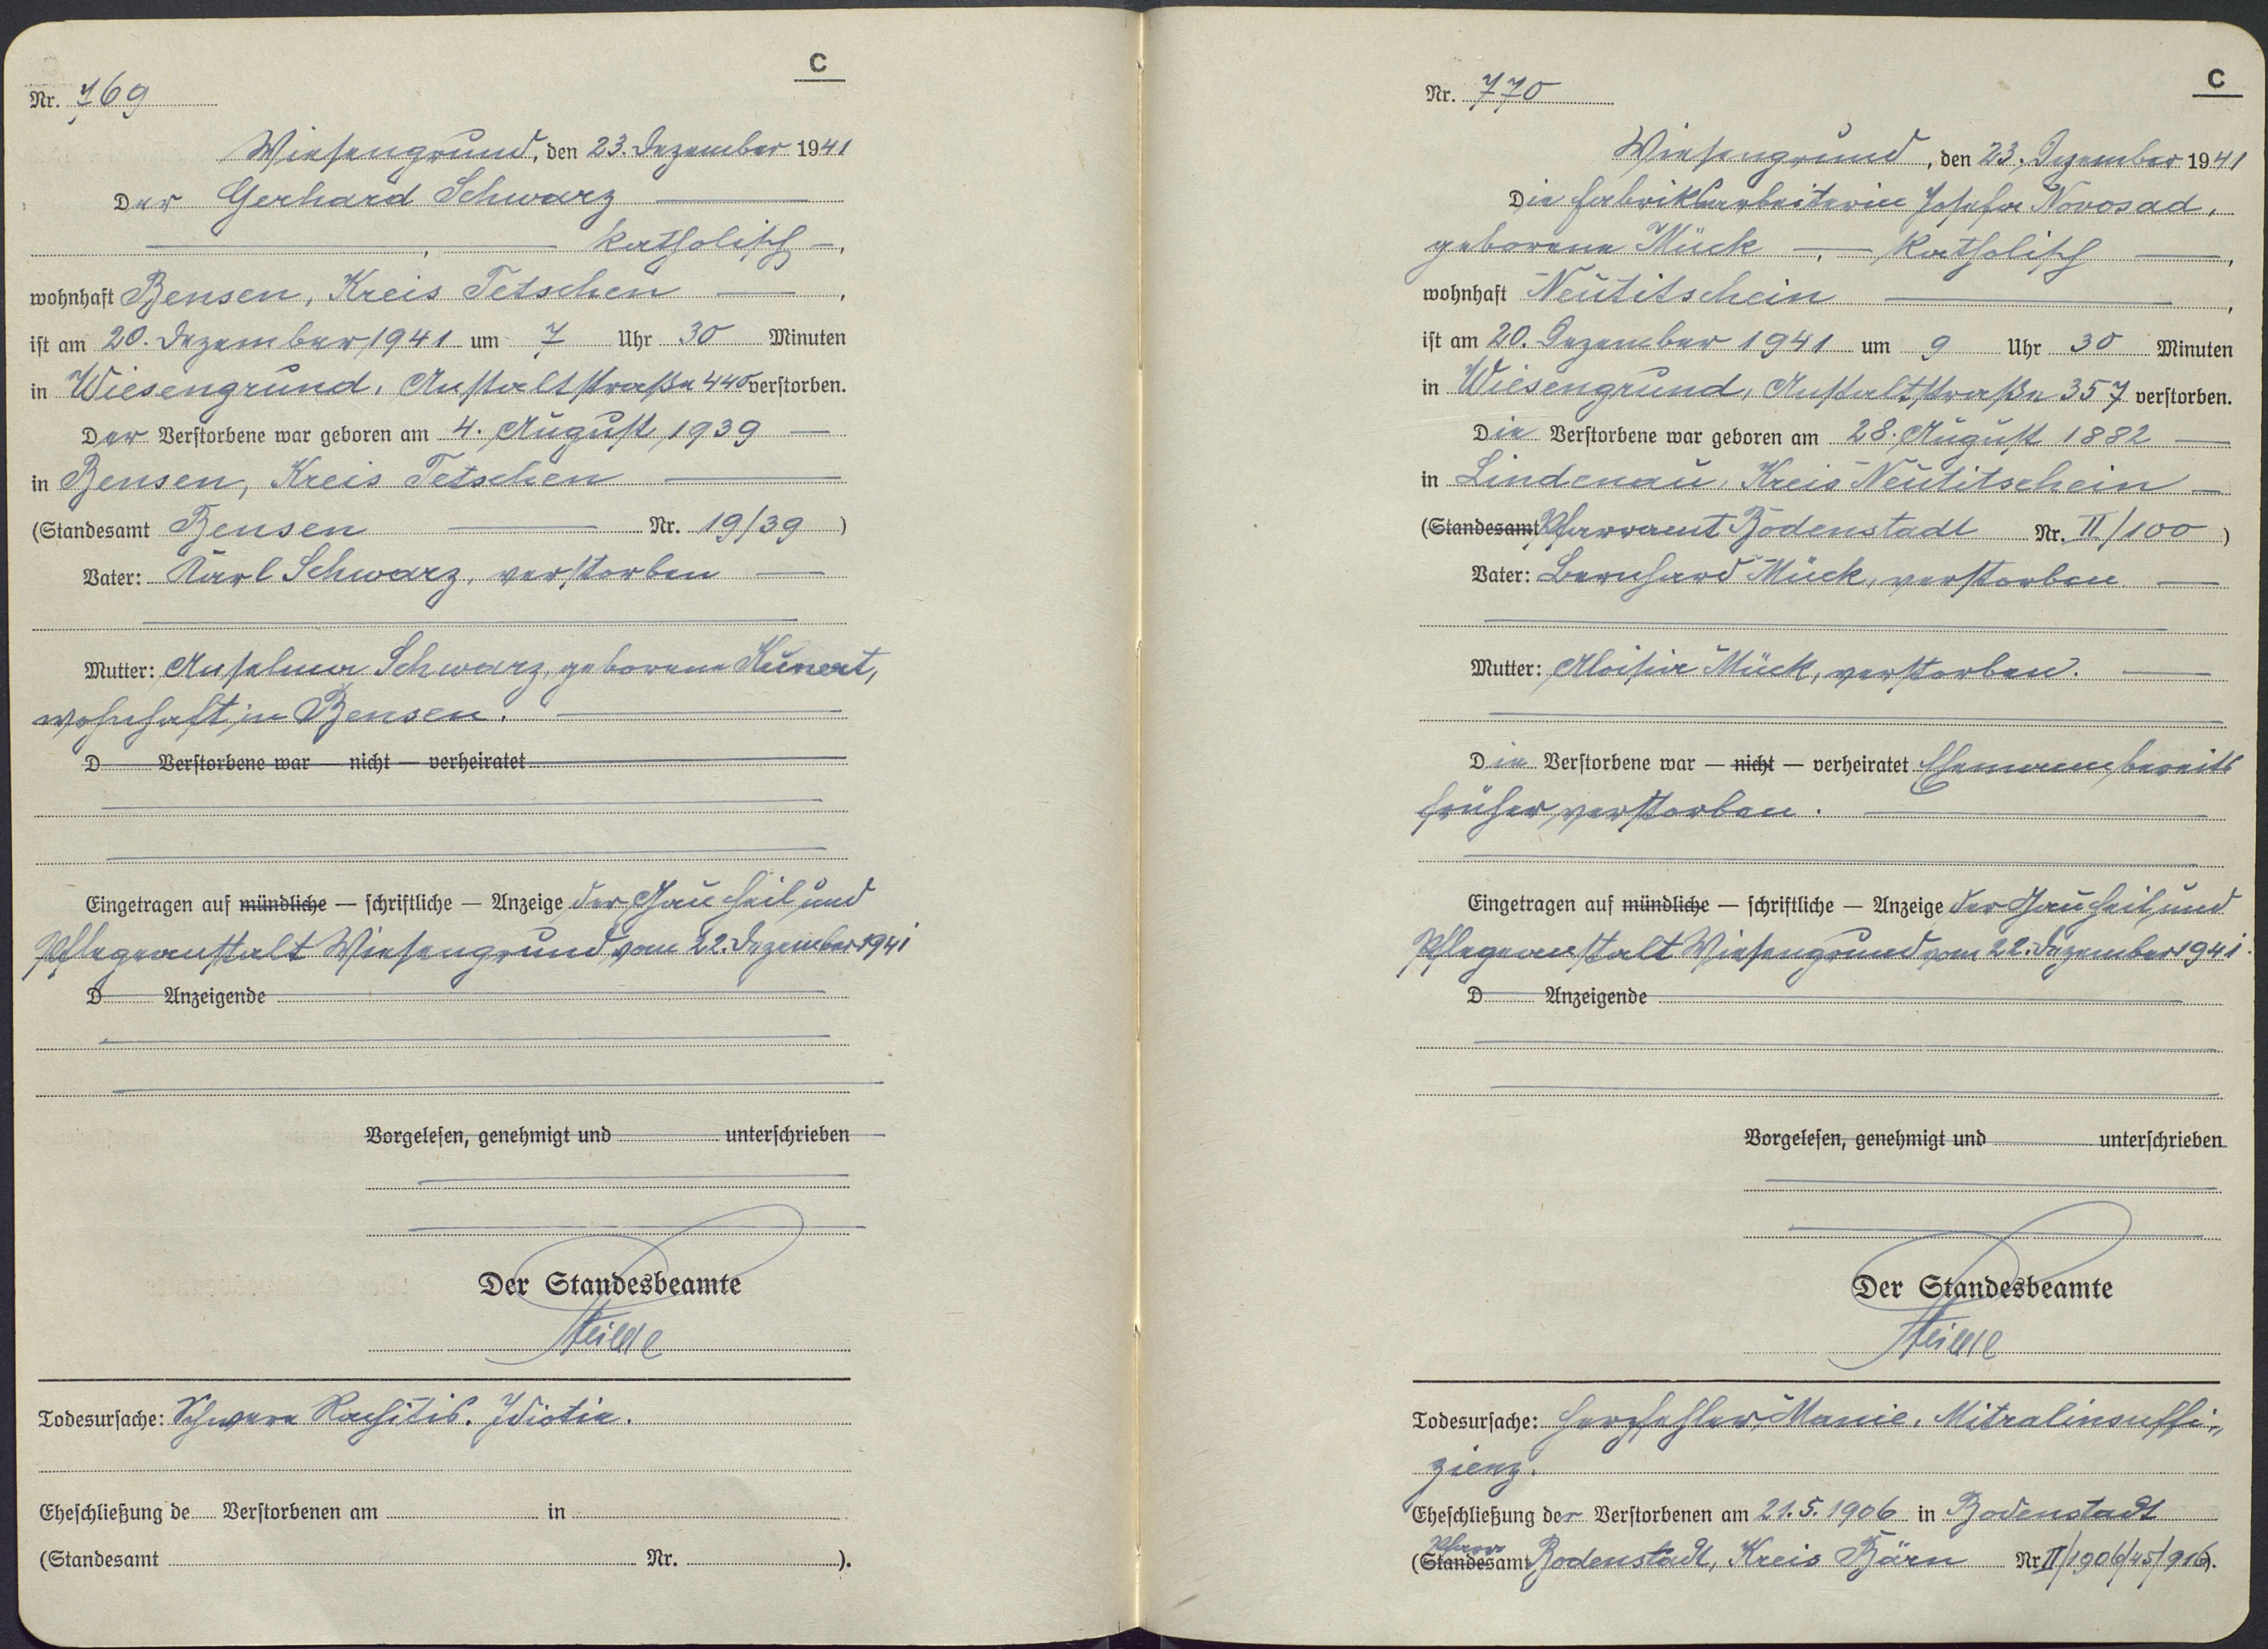 C
Nr. 769
Wiesengrund, den 23. Dezember 1941
Der Gerhard Schwarz
katholisch,
wohnhaft Bensen, Kreis Tetschen,
ist am 20. Dezember 1941 um 7 Uhr 30 Minuten
in Wiesengrund, Anstaltstraße 440 verstorben.
Der Verstorbene war geboren am 4. August 1939
in Bensen, Kreis Tetschen
(Standesamt Bensen Nr. 19/39)
Vater: Karl Schwarz, verstorben
Mutter: Anselma Schwarz, geborene Kunert,
wohnhaft in Bensen.
D Verstorbene war — nicht — verheiratet
Eingetragen auf mündliche — schriftliche — Anzeige der Gau Heil und
Pflegeanstalt Wiesengrund vom 22. Dezember 1941
D Anzeigende
Vorgelesen, genehmigt und unterschrieben
Der Standesbeamte
Todesursache: Schwere Rachitis. Idiotie.
Eheschließung de Verstorbenen am in
(Standesamt Nr. ).
C
Nr. 770
Wiesengrund, den 23. Dezember 1941
Die Fabriksarbeiterin Josefa Novosad,
geborene Mück, katholisch,
wohnhaft Neutitschein,
ist am 20. Dezember 1941 um 9 Uhr 30 Minuten
in Wiesengrund, Anstaltstraße 357 verstorben.
Die Verstorbene war geboren am 28. August 1882
in Lindenau, Kreis Neutitschein
(Standesamt Pfarramt Bodenstadt Nr. II/100)
Vater: Bernhard Mück, verstorben
Mutter: Aloisia Mück, verstorben.
Die Verstorbene war — nicht — verheiratet Ehemann bereits
früher verstorben.
Eingetragen auf mündliche — schriftliche — Anzeige der Gau Heil und
Pflegeanstalt Wiesengrund vom 22. Dezember 1941.
D Anzeigende
Vorgelesen, genehmigt und unterschrieben
Der Standesbeamte
Todesursache: Herzfehler, Manie, Mitralinsuffi-
zienz.
Eheschließung der Verstorbenen am 21.5.1906 in Bodenstadt
Pfarr
(Standesamt Bodenstadt, Kreis Bärn Nr. II/1906/45/916).